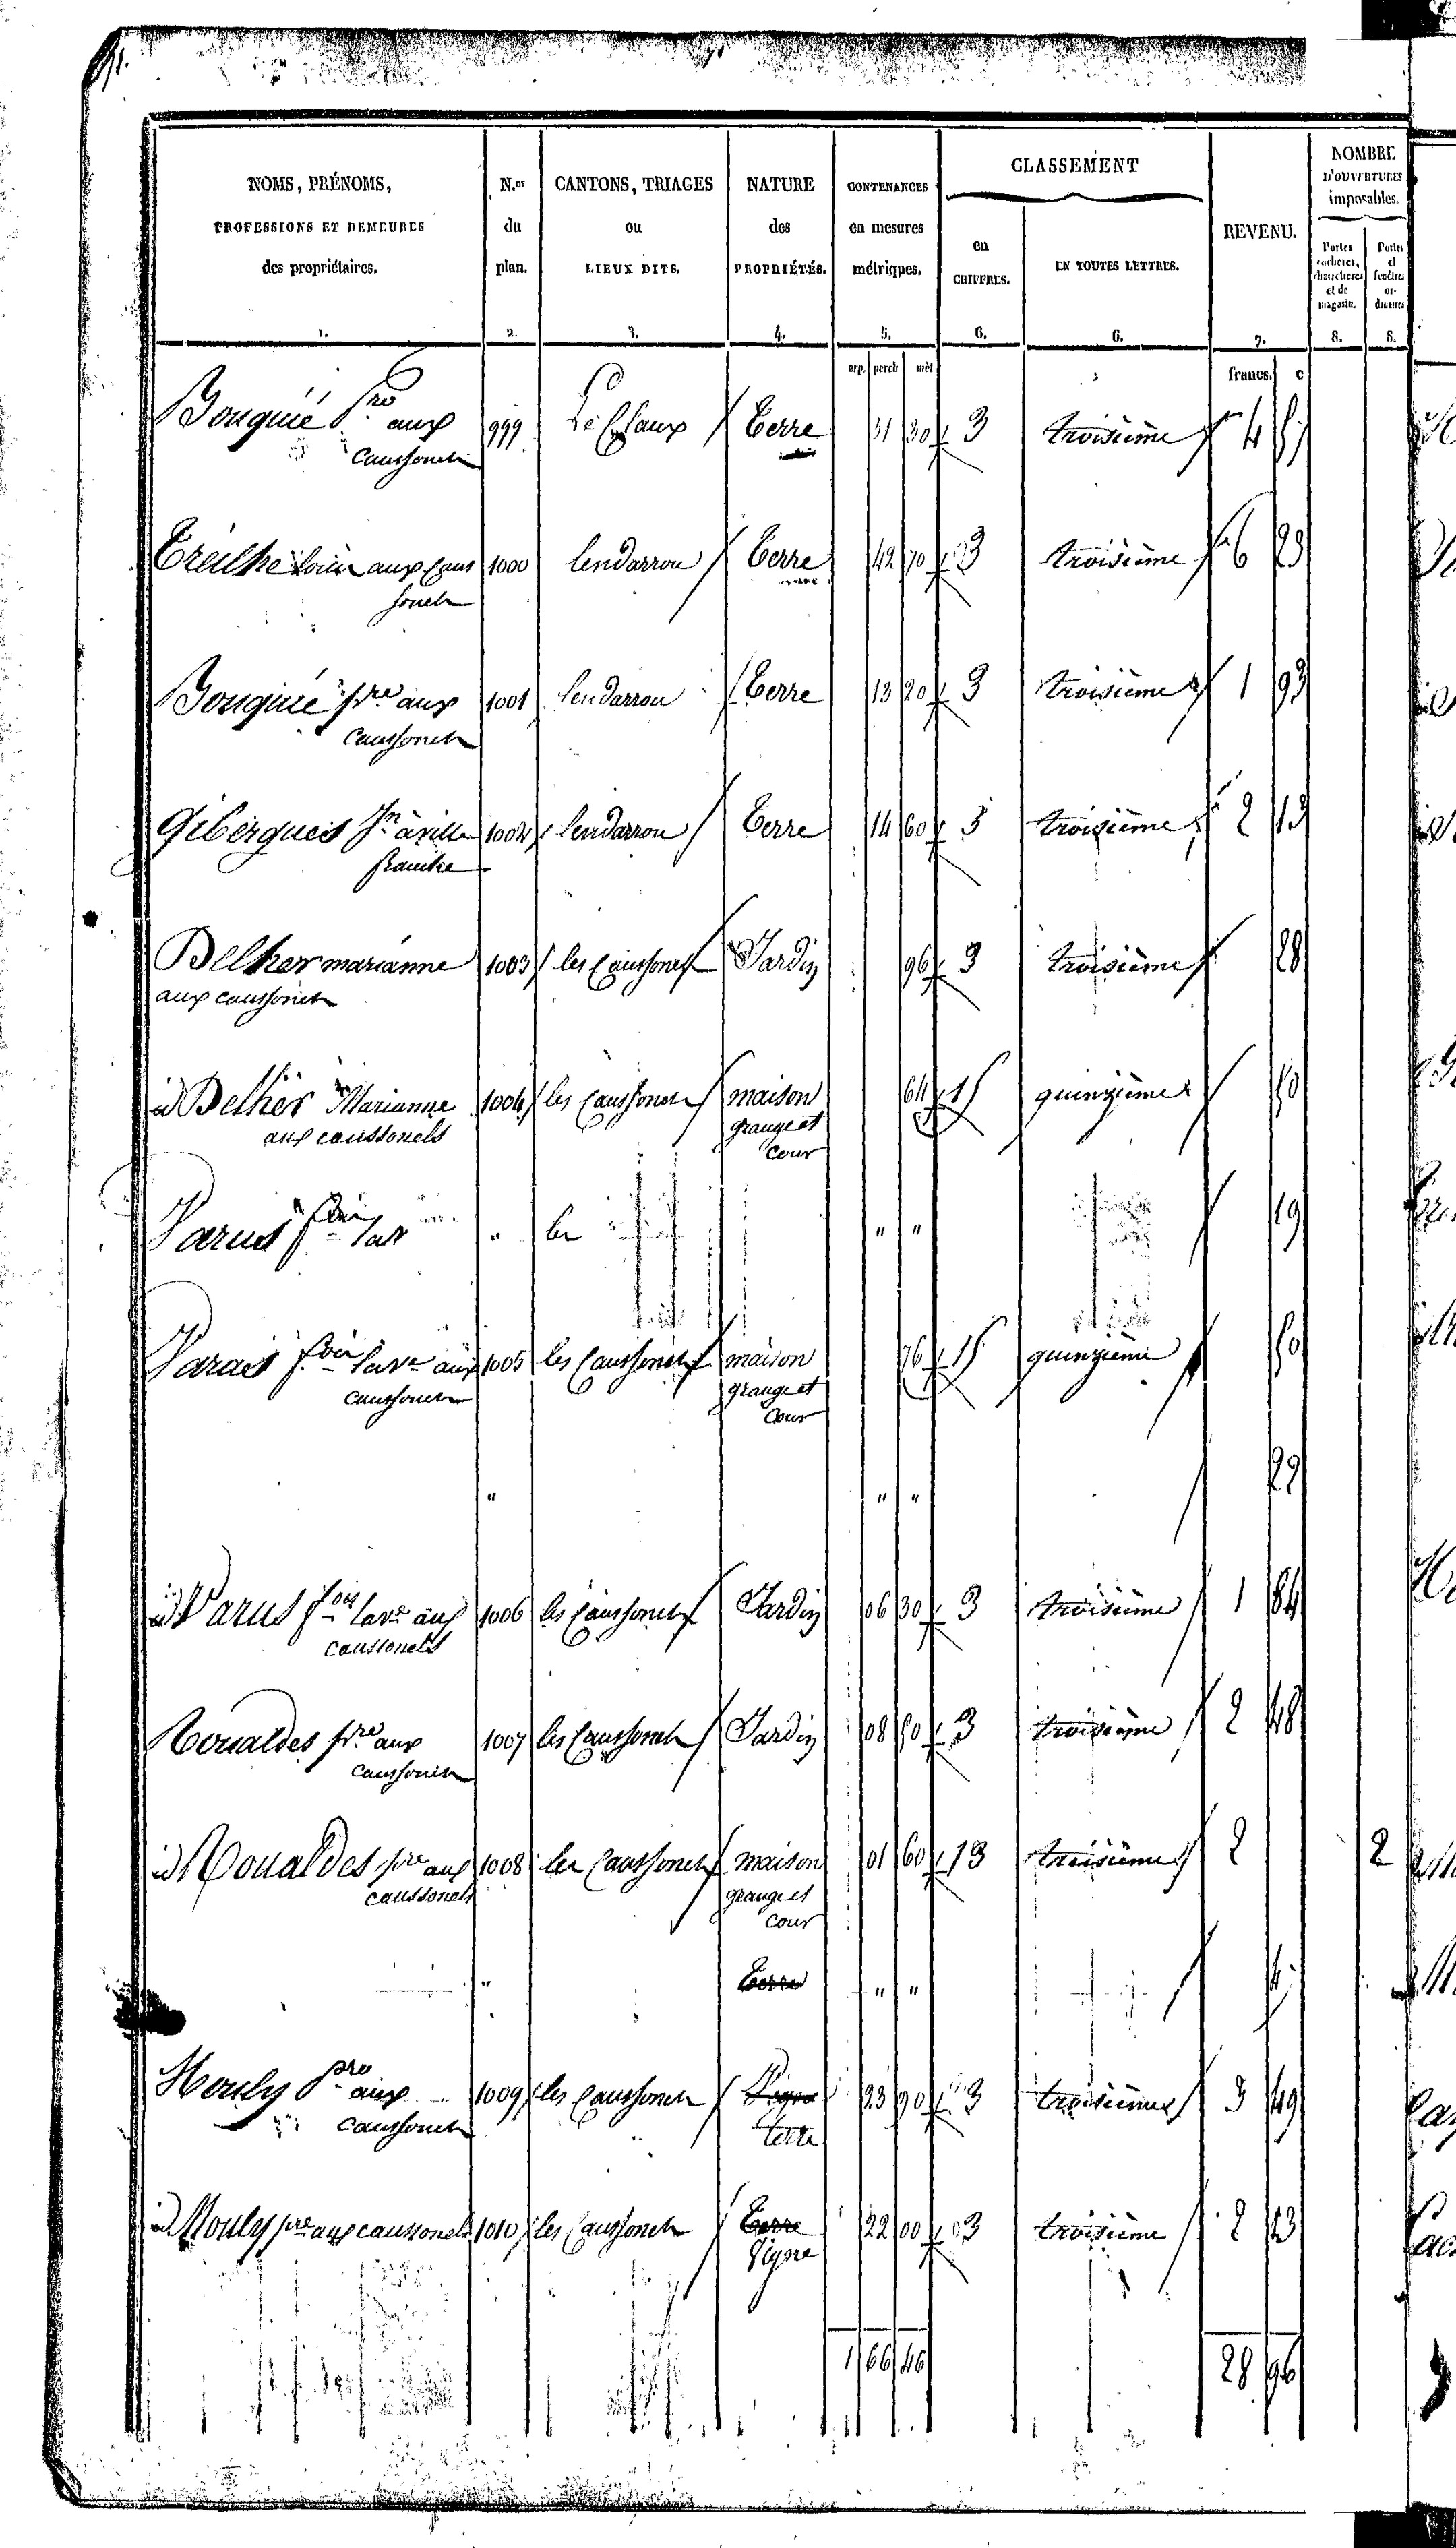 NOMS, PRÉNOMS, PROFESSIONS ET DEMEURES des propriétaires. 1.
N.os du plan. 2.
CANTONS, TRIAGES ou LIEUX DITS. 3.
NATURE des PROPRIÉTÉS. 4.
CONTENANCES en mesures métriques. 5.
CLASSEMENT
en CHIFFRES. 6.
EN TOUTES LETTRES. 6.
REVENU. 7.
NOMBRE D'OUVERTURES imposables.
Portes cochères, charretières et de magasin. 8.
Portes et fenêtres ordinaires 8.
arp. perch mèt francs. c
Bouquié Pre aux 999 Terre 31 30 3 troisième 4 57
Caussonels
Treilhe louis aux Caus 1000 lendarrou Terre 42 70 3 troisième 6 23
sonels
Bouquié pre aux 1001 lendarrou Terre 13 20 3 troisième 1 93
Caussonels
Gibergues Jn à ville 1002 lendarrou Terre 14 60 3 troisième 2 13
franche
Delher marianne 1003 les Caussonels Jardin 96 3 troisième 28
aux caussonels
id Delher Marianne 1004 les Caussonels maison 64 15 quinzième 50
aux caussonels grange et
cour
" les " " 19
1005 les Caussonels maison 76 15 quinzième 50
caussonels grange et
cour
" " " 29
id 1006 les Caussonels Jardin 06 30 3 troisième 1 84
caussonels
Roualdes pre aux 1007 les Caussonels Jardin 08 50 3 troisième 2 48
Caussonels
id Roualdes pre aux 1008 les Caussonels maison 01 60 13 troisième 2 2
caussonels grange et
cour
" Terre " "
Mouly Pre aux 1009 les Caussonels Vigne 23 90 3 troisième 3 49
caussonels terre
id Mouly pre aux caussonels 1010 les Caussonels Terre 22 00 3 troisième 2 13
Vigne
1 66 46 28 96